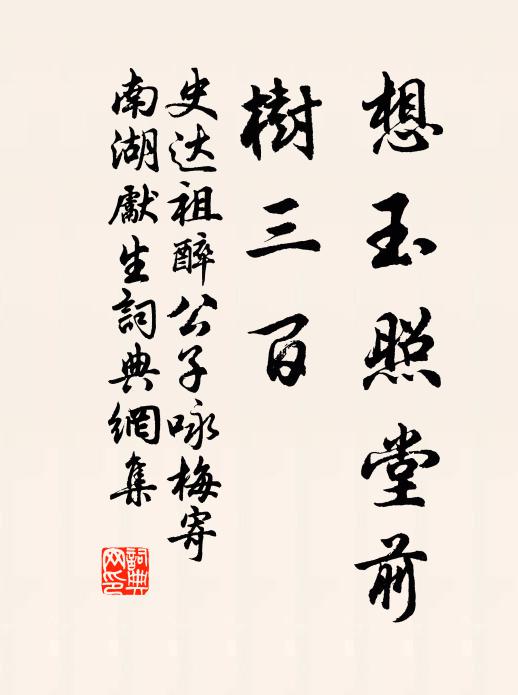 想玉照堂前
樹三百
史达祖醉公子咏梅寄
南湖處生詞典網集
詞典
网印